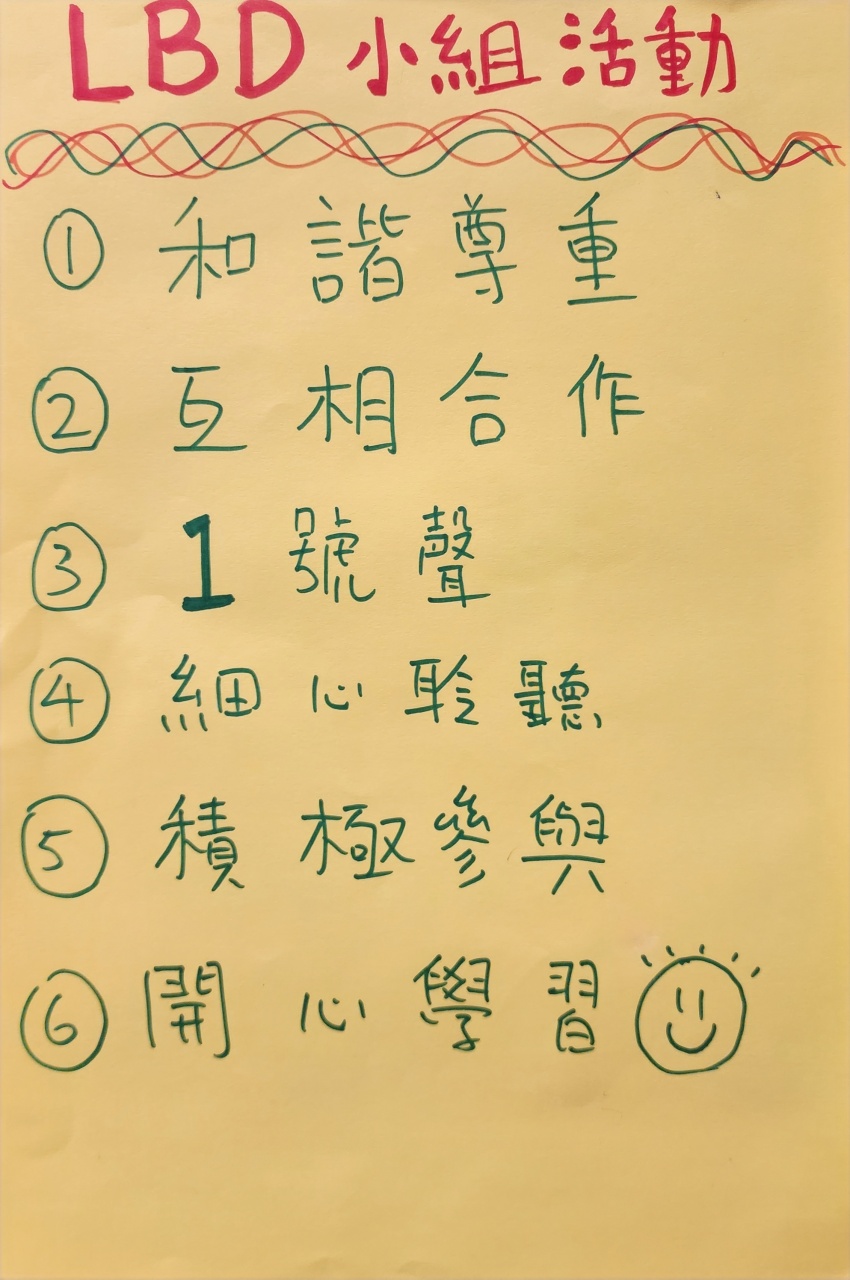 LBD 小組活動
① 和諧尊重
② 互相合作
③ 1號聲
④ 細心聆聽
⑤ 積極參與
⑥ 開心學習